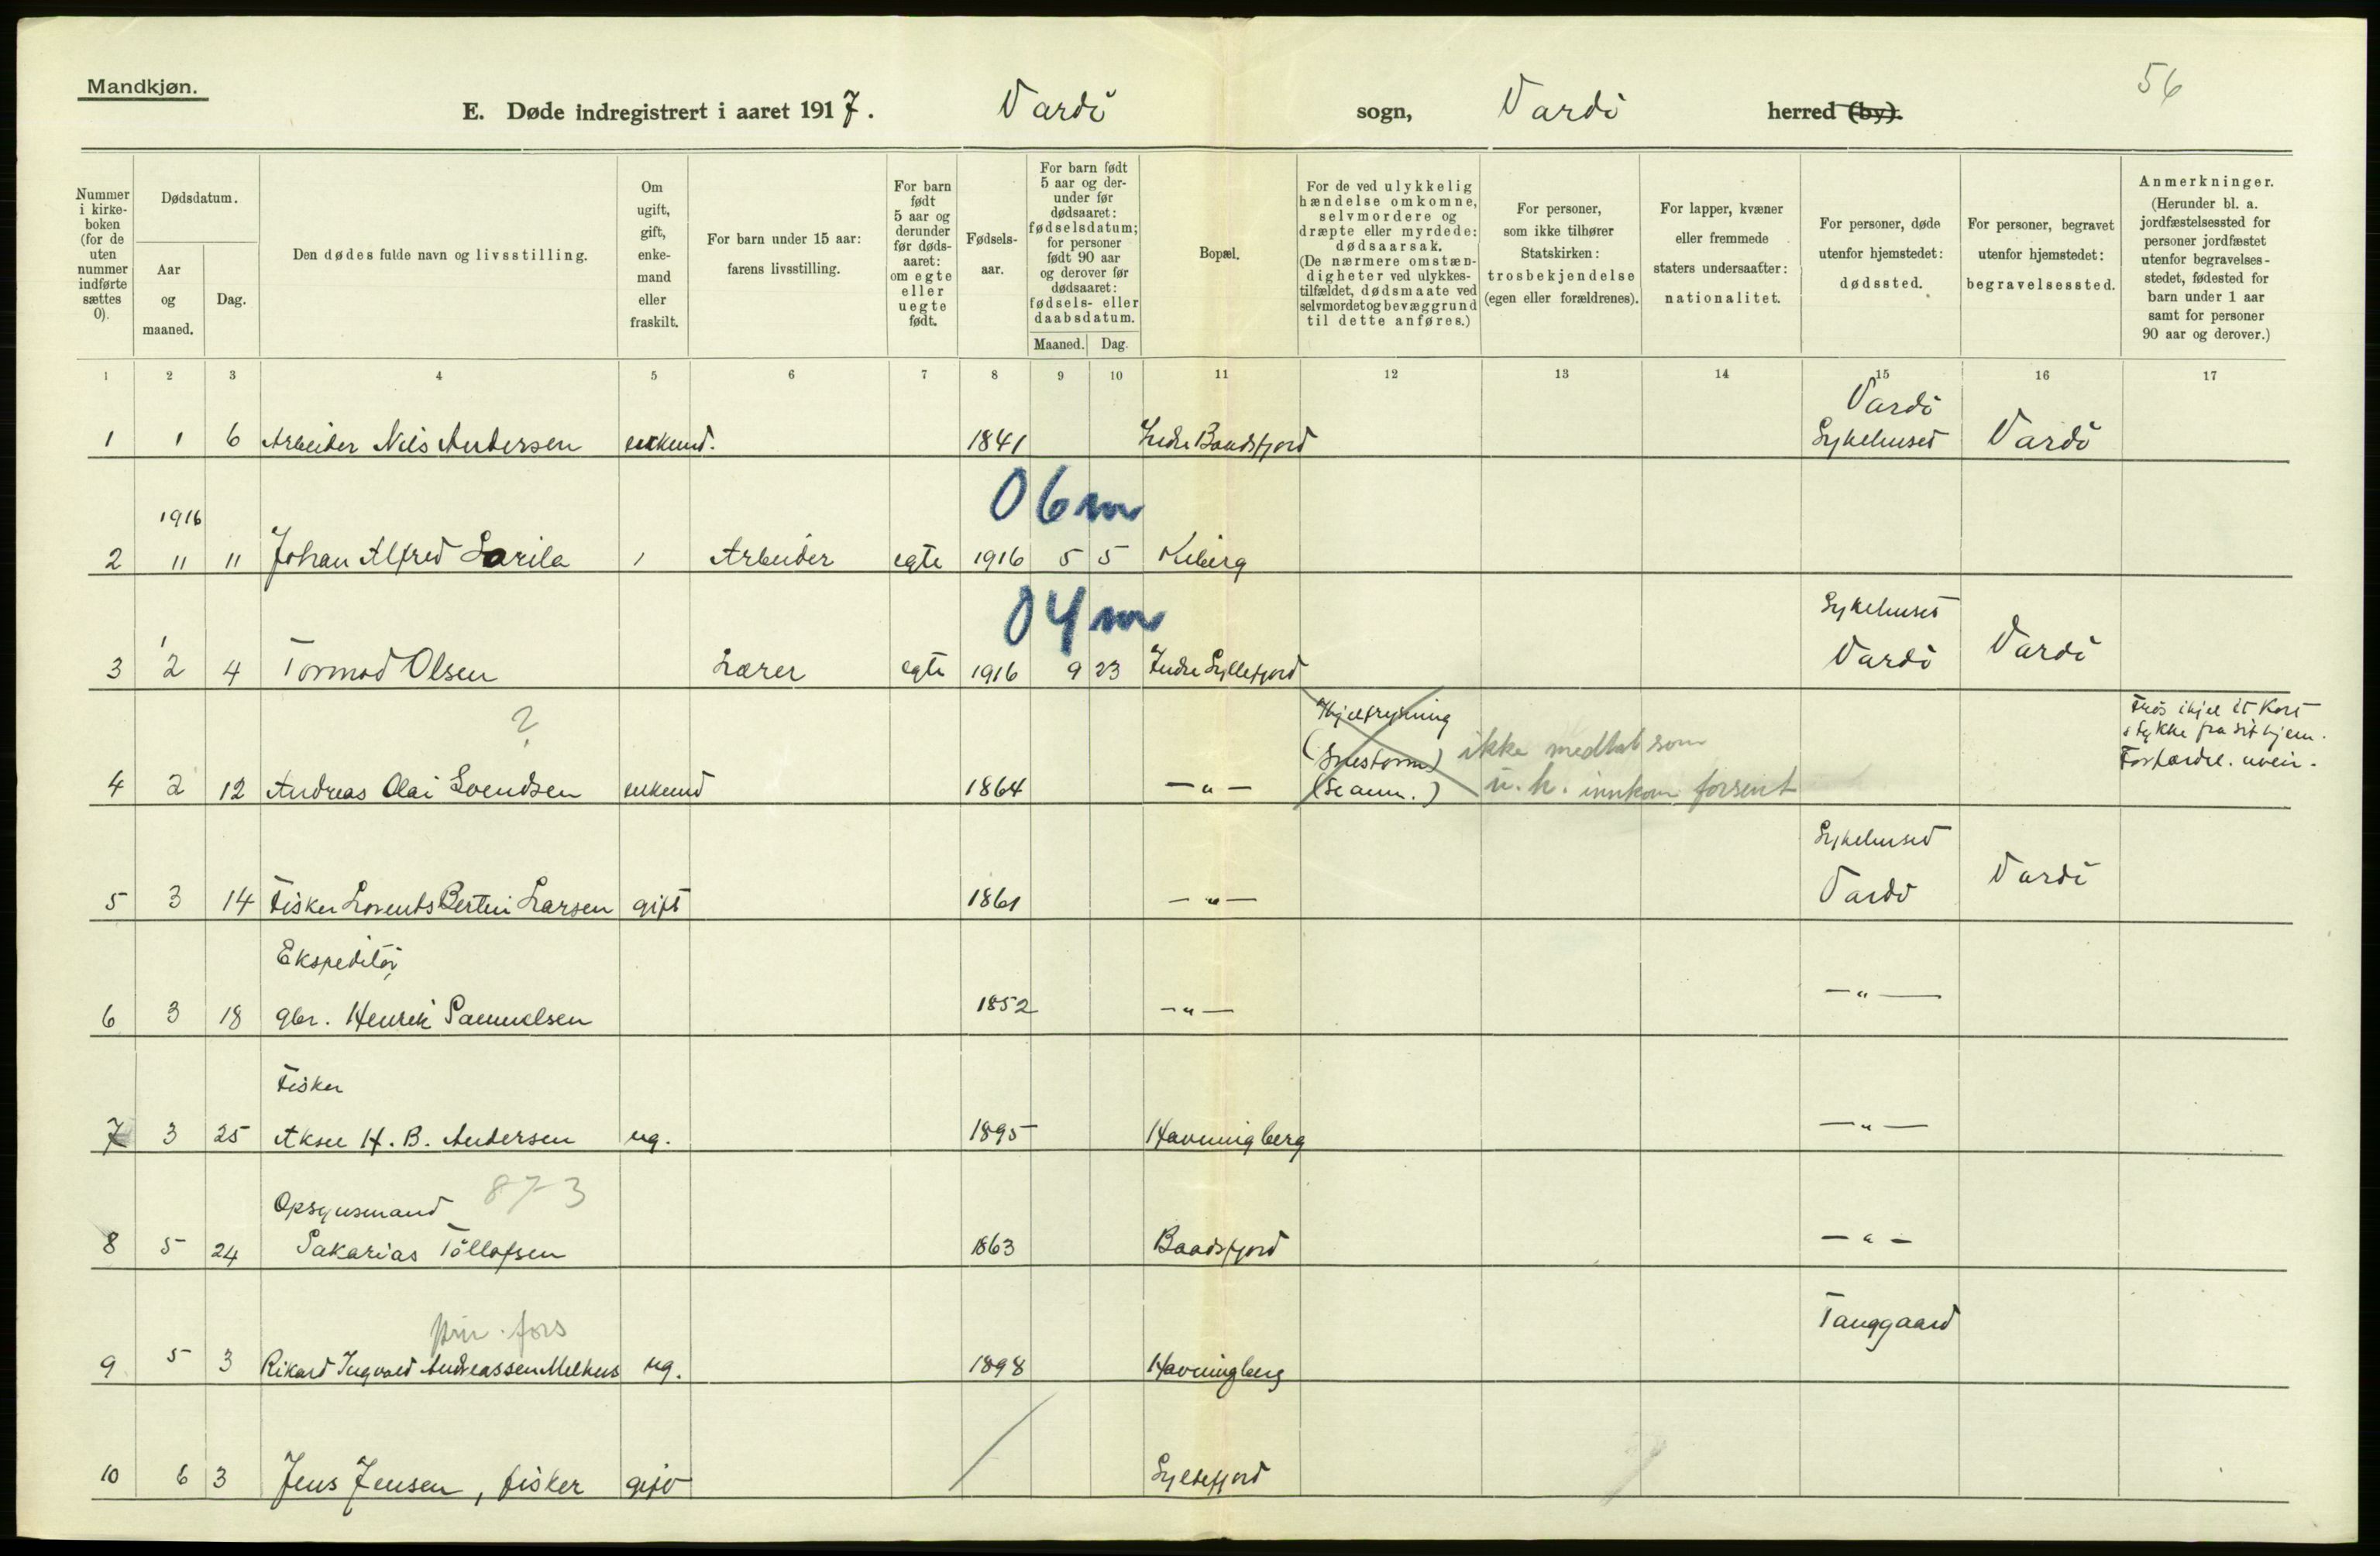 Mandkjøn.
56
E. Døde indregistrert i aaret 1917. Vardö sogn, Vardö herred (by).
Nummer i kirke-boken (for de uten nummer indførte sættes 0).
Dødsdatum.
Aar og maaned.
Dag.
Den dødes fulde navn og livsstilling.
Om ugift, gift, enke-mand eller fraskilt.
For barn under 15 aar: farens livsstilling.
For barn født 5 aar og derunder før døds-aaret: om egte eller uegte født.
Fødsels-aar.
For barn født 5 aar og der-under før dødsaaret: fødselsdatum; for personer født 90 aar og derover før dødsaaret: fødsels- eller daabsdatum.
Maaned. Dag.
Bopæl.
For de ved ulykkelig hændelse omkomne, selvmordere og dræpte eller myrdede: dødsaarsak. (De nærmere omstæn-digheter ved ulykkes-tilfældet, dødsmaate ved selvmordet og bevæggrund til dette anføres.)
For personer, som ikke tilhører Statskirken: trosbekjendelse (egen eller forældrenes).
For lapper, kvæner eller fremmede staters undersaatter: nationalitet.
For personer, døde utenfor hjemstedet: dødssted.
For personer, begravet utenfor hjemstedet: begravelsessted.
Anmerkninger. (Herunder bl. a. jordfæstelsessted for personer jordfæstet utenfor begravelses-stedet, fødested for barn under 1 aar samt for personer 90 aar og derover.)
1 2 3 4 5 6 7 8 9 10 11 12 13 14 15 16 17
Vardö
1 1 6 Arbeider Nils Andersen enkemd. 1841 Indre Baadsfjord Sykehuset Vardö
06 m
1916
2 11 11 Johan Alfred Sarila 1 Arbeider egte 1916 5 5 Kiberg
04 m
Sykehuset
1
3 2 4 Tormod Olsen Lærer egte 1916 9 23 Indre Syltefjord Vardö Vardö
? Ihjelfrysning Frös ihjel et kort
(Snestorm) ikke medtat som stykke fra sit hjem.
Forfærdel. uveir.
4 2 12 Andreas Olai Svendsen enkemd 1864 — " — (Se anm.) u. h. innkom forsent
Sykehuset
5 3 14 Fisker Lorents Bertin Larsen gift 1861 — " — Vardö Vardö
Ekspeditör
6 3 18 gbr. Henrik Samuelsen 1852 — " — — " —
Fisker
7 3 25 Aksel H. B. Andersen ug. 1895 Havningberg — " —
Opsynsmand 873
8 5 24 Sakarias Töllefsen 1863 Baadsfjord — " —
priv. fors Tanggaard
9 5 3 Rikard Ingvald Andreassen Melhus ug. 1898 Havningberg
10 6 3 Jens Jensen, fisker gift Syltefjord